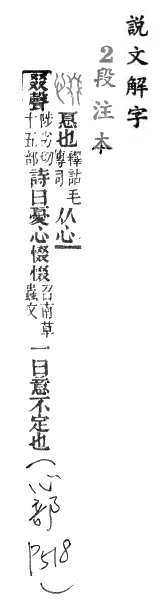 說文解字
2段注本
𢝊也釋詁毛傳同从心
叕聲陟劣切十五部詩曰憂心惙惙召南草蟲文一曰意不定也(心部P518)